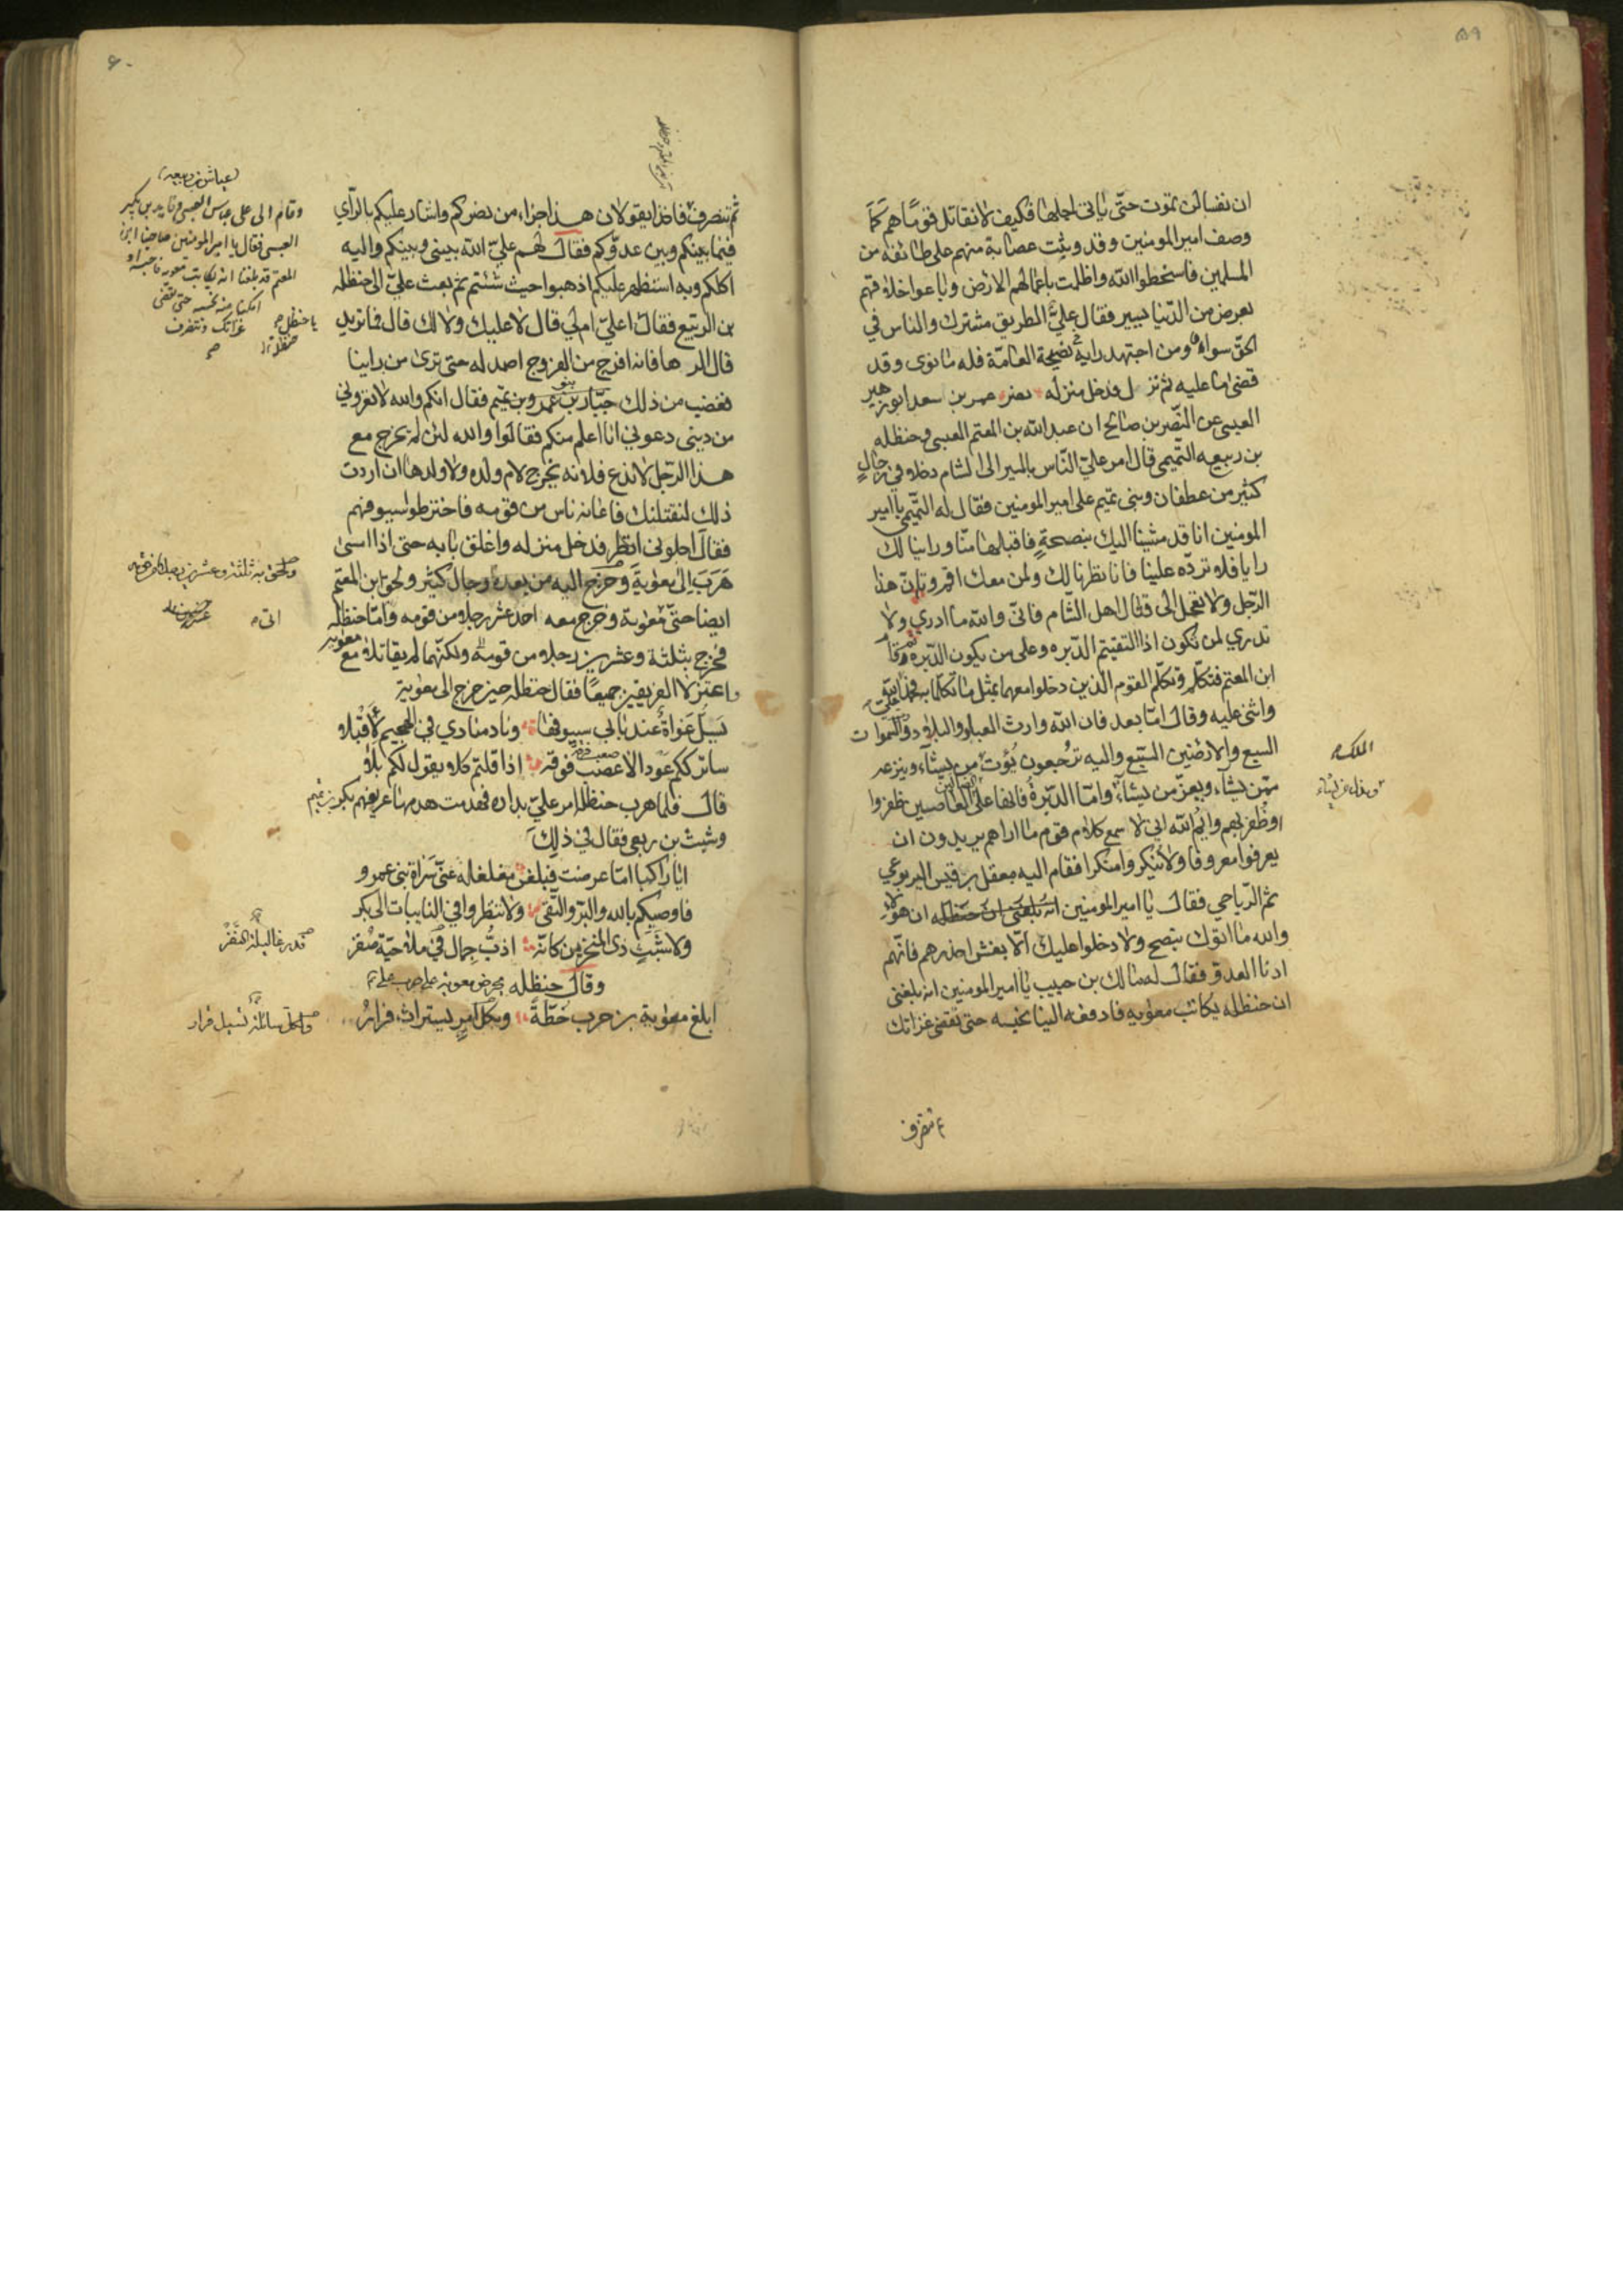 ٥٩
ان نفسا لن تموت حتّى ياتى اجلها فكيف لا نقاتل قومًا هم كما
وصف امير المومنين وقد وثبت عصابة منهم على طائفة من
المسلمين فاسخطوا الله واظلمت باعمالهم الارض وباعوا خلاقهم
بعرض من الدّنيا يسير فقال علىّ الطريق مشترك والناس في
الحقّ سواء ومن اجتهد رايه في نصيحة العامّة فله ما نوى وقد
قضى ما عليه ثم نزل فدخل منزله نصر عمر بن سعد ابو زهير
العبسى عن النّضر بن صالح ان عبد الله بن المعتم العبسى وحنظله
بن ربيعه التّميمى قال امر علىّ النّاس بالمسير الى الشام دخلا في رجالٍ
كثير من غطفان وبنى تميم على امير المومنين فقال له التّميمى يا امير
المومنين انا قد مشينا اليك بنصيحةٍ فاقبلها منّا وراينا لك
رايا فلا تردّه علينا فانا نظرنا لك ولمن معك اقم وكاتب هذا
الرّجل ولا تعجل الى قتال اهل الشّام فانّى والله ما ادري ولا
تدري لمن تكون اذا التقيتم الدّبره وعلى من يكون الدّبره وقام
ابن المعتم فتكلّم وتكلّم القوم الذين دخلوا معهما بمثل ما تكلّما به فحمد الله علىّ
واثنى عليه وقال امّا بعد فان الله وارث العباد والبلاد والسّموات
السبع والارضين السّبع واليه ترجعون يُؤتى من يشآء وينزعه
الملك
ممّن يشآء ويعزّ من يشآء وامّا الدّبرةُ فانها على العاصين ظفروا
الضالين
ويذل من يشاء
اوظُفر بهم وايم الله اني لاسمع كلام قوم ما اراهم يريدون ان
يعرفوا معروفا ولا ينكروا منكرا فقام اليه معقل بن قيس اليربوعي
ثم الرّياحي فقال يا امير المومنين انه بلغنى ان حنظله ان هؤلاء
والله ما اتوك بنصح ولا دخلوا عليك الّا بغش احذرهم فانّهم
ادنا العدوّ فقال له مالك بن حبيب يا امير المومنين انه بلغنى
ان حنظله يكاتب معوٰيه فادفعه الينا نحبسه حتى تقضى غزاتك
ثم تنصرف
٦٠
ثم تنصرف فاخذا يقولان هذا جزاء من نصركم واشار عليكم بالرّأي
فيما بينكم وبين عدوّكم فقال لهم علىّ الله بينى وبينكم واليه
اكلكم وبه استظهر عليكم اذهبوا حيث شئتم ثم بعث علىّ الى حنظله
بن الربيع فقال اعلىّ ام لي قال لا عليك ولا لك قال فما تريد
قال الرها فانه افرج من الفروج اصمد له حتى ترى من راينا
فغضب من ذلك جبار بن عمرو بن تميم فقال انكم والله لا تغروني
من دينى دعوني انا اعلم منكم فقالوا والله لئن لم تخرج مع
هذا الرّجل لا ندع فلانه تخرج لام ولده ولا ولدها ان اردت
ذلك لنقتلنك فاعانه ناس من قومه فاخترطوا سيوفهم
فقال اجلوني انظر فدخل منزله واغلق بابه حتى اذا امسىٰ
هَرَبَ الى معٰوية وخرج اليه من بعده رجال كثير ولحق ابن المعتم
ايضا حتّى معٰوية وخرج معه احد عشر رجلا من قومه وامّا حنظله
فخرج بثلثة وعشرين رجلا من قومه ولكنّهما لم يقاتلا مع معويه
واعتزلا الفريقين جميعًا فقال حنظله حين خرج الى معوية
يَسلّ غواةٌ عند بابى سيوفها ونادى منادي في الهجيم لأقبلا
ساتركم عَودا لاصعب فرقه اذا قلتم كلا يقول لكم بلى
قال فلما هرب حنظله امر علىّ بداره فهدمت هدمها عريفهم بكر بن تميم
وشبث بن ربعى فقال في ذلك
ايا راكبا امّا عرضت فبلغن مغلغلة عنّى سَراة بنى عمرو
فاوصيكم بالله والبرّ والتّقى ولا تنظروا في النايبات الى بكر
ولا شَبَثٍ ذي المنخرين كانّه ازبُّ جمال
وقال حنظله يحرض معوية
ابلغ معٰوية بن حرب خُطّةً ولكل
وقام الى على عياش العبسى وقايد بن بكير
العبسى فقال يا امير المومنين صاحبنا ابن
المعتم قد بلغنا انه يكاتب معويه فاحبسه او
امكنّا منه نحبسه حتى تقضى
غزاتك وتنصرف
ولحق به ثلثة وعشرون رجلا من قومه
اتى